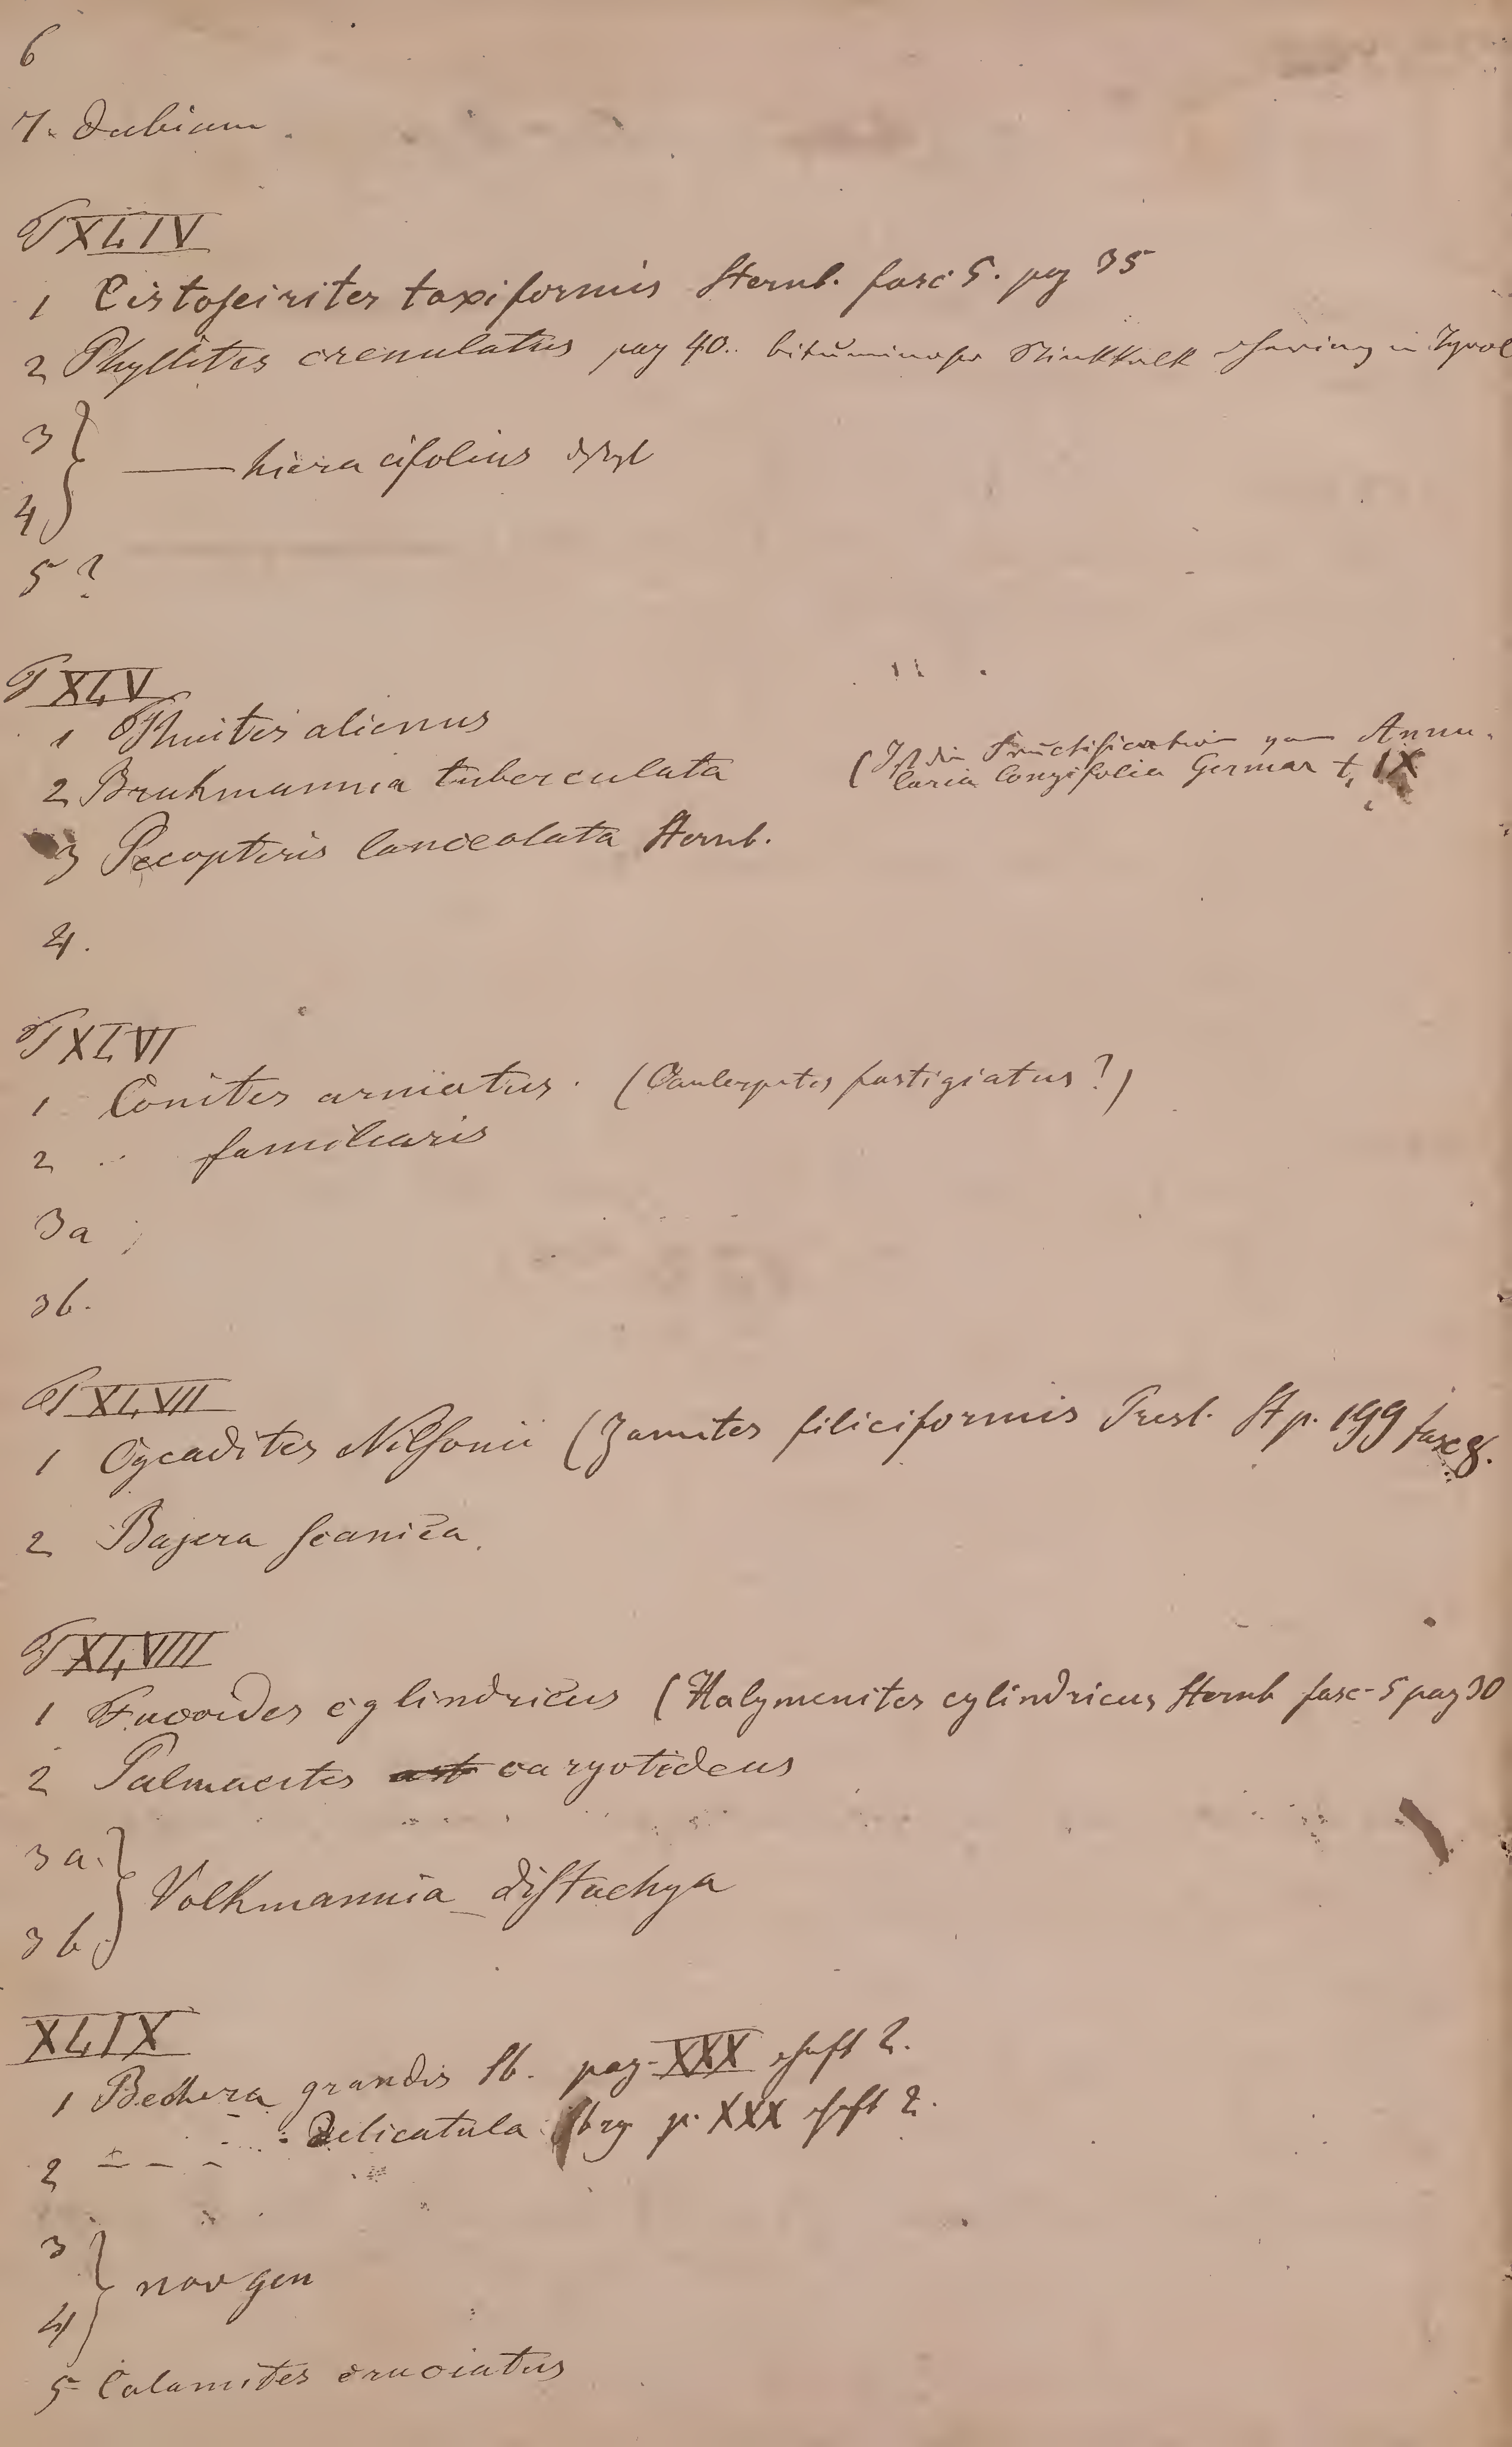 6
7. dubium.
T XLIV
1 Cistoseirites taxiformis Sternb. fasc 5. pag 35
2 Phyllites crenulatus pag 40.. bituminoser Stinkkalk Haering in Tyrol
3
——— hieracifolius
4
5 ?
T XLV
1 Thuites alienus
2 Brukmannia tuberculata (Ist die Fructification von Annu-
laria longifolia Germar t. IX
3 Pecopteris lanceolata Sternb.
4.
T XLVI
1 Conites armatus. (Caulerpites fastigiatus?)
2 " familiaris
3a
3b.
T XLVII
1 Cycadites Nilsonii (Zamites filiciformis Presl. St p. 199 fasc 8.
2 Bajera scanica.
T XLVIII
1 Fucoides cylindricus (Halymenites cylindricus Sternb fasc-5 pag 30
2 Palmacites caryotideus
3a.
Volkmannia distachya
3b.
XLIX
1 Bechera grandis Sb. pag-XXX Heft 2.
2 — — — delicatula Sbrg p. XXX Heft 2.
3
nov gen
4
5 Calamites cruciatus